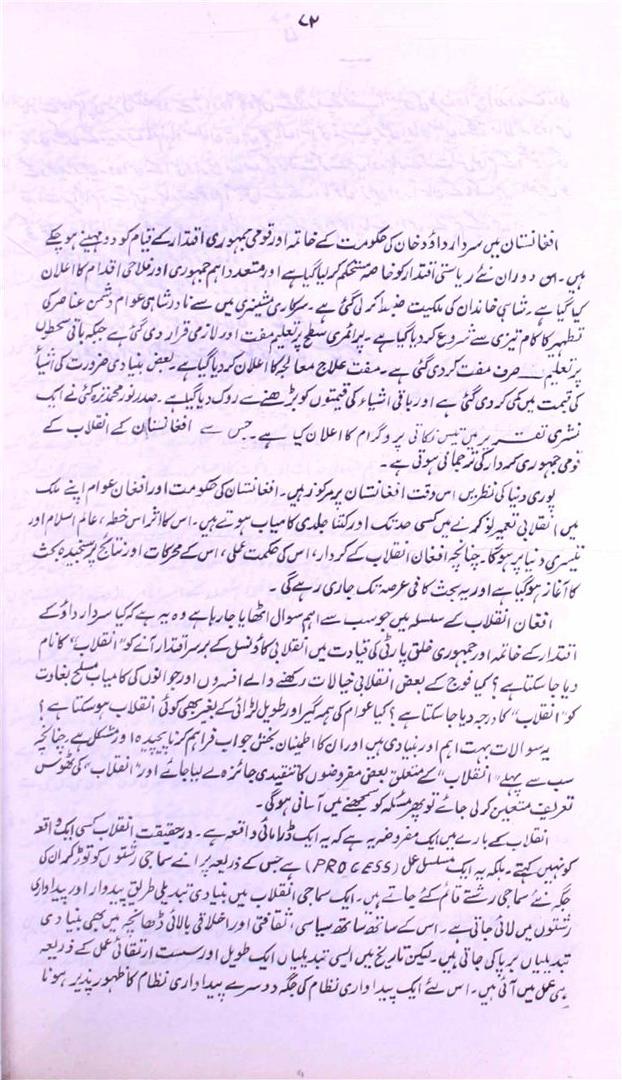 ۷۲
افغانستان میں سردار داؤد خان کی حکومت کے خاتمہ اور قومی جمہوری اقتدار کے قیام کو دو مہینے ہو چکے
ہیں۔ اس دوران نئے ریاستی اقتدار کو خاصہ مستحکم کر لیا گیا ہے اور متعدد اہم جمہوری اور فلاحی اقدام کا اعلان
کیا گیا ہے۔ شاہی خاندان کی ملکیت ضبط کر لی گئی ہے۔ سرکاری مشینری میں سے نادر شاہی عوام دشمن عناصر کی
تطہیر کا کام تیزی سے شروع کر دیا گیا ہے۔ پرائمری سطح پر تعلیم مفت اور لازمی قرار دی گئی ہے جبکہ باقی سطحوں
پر تعلیم صرف مفت کر دی گئی ہے۔ مفت علاج معالجہ کا اعلان کر دیا گیا ہے۔ بعض بنیادی ضرورت کی اشیأ
کی قیمت میں کمی کر دی گئی ہے اور باقی اشیاء کی قیمتوں کو بڑھنے سے روک دیا گیا ہے۔ صدر نور محمد ترہ کئی نے ایک
نشری تقریر میں تیس نکاتی پروگرام کا اعلان کیا ہے۔ جس سے افغانستان کے انقلاب کے
قومی جمہوری کردار کی ترجمانی ہوتی ہے۔
پوری دنیا کی نظریں اس وقت افغانستان پر مرکوز ہیں۔ افغانستان کی حکومت اور افغان عوام اپنے ملک
میں انقلابی تعمیر نو کرنے میں کسی حد تک اور کتنا جلدی کامیاب ہوتے ہیں۔ اس کا اثر اس خطہ، عالم اسلام اور
تیسری دنیا پر ہوگا۔ چنانچہ افغان انقلاب کے کردار، اس کی حکمت عملی، اس کے محرکات اور نتائج پر سنجیدہ بحث
کا آغاز ہو گیا ہے اور یہ بحث کافی عرصہ تک جاری رہے گی۔
افغان انقلاب کے سلسلہ میں جو سب سے اہم سوال اٹھایا جا رہا ہے وہ یہ ہے کہ کیا سردار داؤد کے
اقتدار کے خاتمہ اور جمہوری خلق پارٹی کی قیادت میں انقلابی کاؤنسل کے برسر اقتدار آنے کو "انقلاب" کا نام
دیا جا سکتا ہے؟ کیا فوج کے بعض انقلابی خیالات رکھنے والے افسروں اور جوانوں کی کامیاب مسلح بغاوت
کو "انقلاب" کا درجہ دیا جا سکتا ہے؟ کیا عوام کی ہمہ گیر اور طویل لڑائی کے بغیر بھی کوئی انقلاب ہو سکتا ہے؟
یہ سوالات بہت اہم اور بنیادی ہیں اور ان کا اطمینان بخش جواب فراہم کرنا پیچیدہ اور مشکل ہے۔ چنانچہ
سب سے پہلے "انقلاب" کے متعلق بعض مفروضوں کا تنقیدی جائزہ لے لیا جائے اور "انقلاب" کی ٹھوس
تعریف متعین کر لی جائے تو پھر مسئلہ کو سمجھنے میں آسانی ہوگی۔
انقلاب کے بارے میں ایک مفروضہ یہ ہے کہ یہ ایک ڈرامائی واقعہ ہے۔ درحقیقت انقلاب کسی ایک واقعہ
کو نہیں کہتے۔ بلکہ یہ ایک مسلسل عمل (PROCESS) ہے جس کے ذریعہ پرانے سماجی رشتوں کو توڑ کر ان کی
جگہ نئے سماجی رشتے قائم کئے جاتے ہیں۔ ایک سماجی انقلاب میں بنیادی تبدیلی طریق پیداوار اور پیداواری
رشتوں میں لائی جاتی ہے۔ اس کے ساتھ ساتھ سیاسی، ثقافتی اور اخلاقی بالائی ڈھانچہ میں بھی بنیادی
تبدیلیاں برپا کی جاتی ہیں۔ لیکن تاریخ میں ایسی تبدیلیاں ایک طویل اور سست ارتقائی عمل کے ذریعہ
ہی عمل میں آتی ہیں۔ اس لئے ایک پیداواری نظام کی جگہ دوسرے پیداواری نظام کا ظہور پذیر ہونا